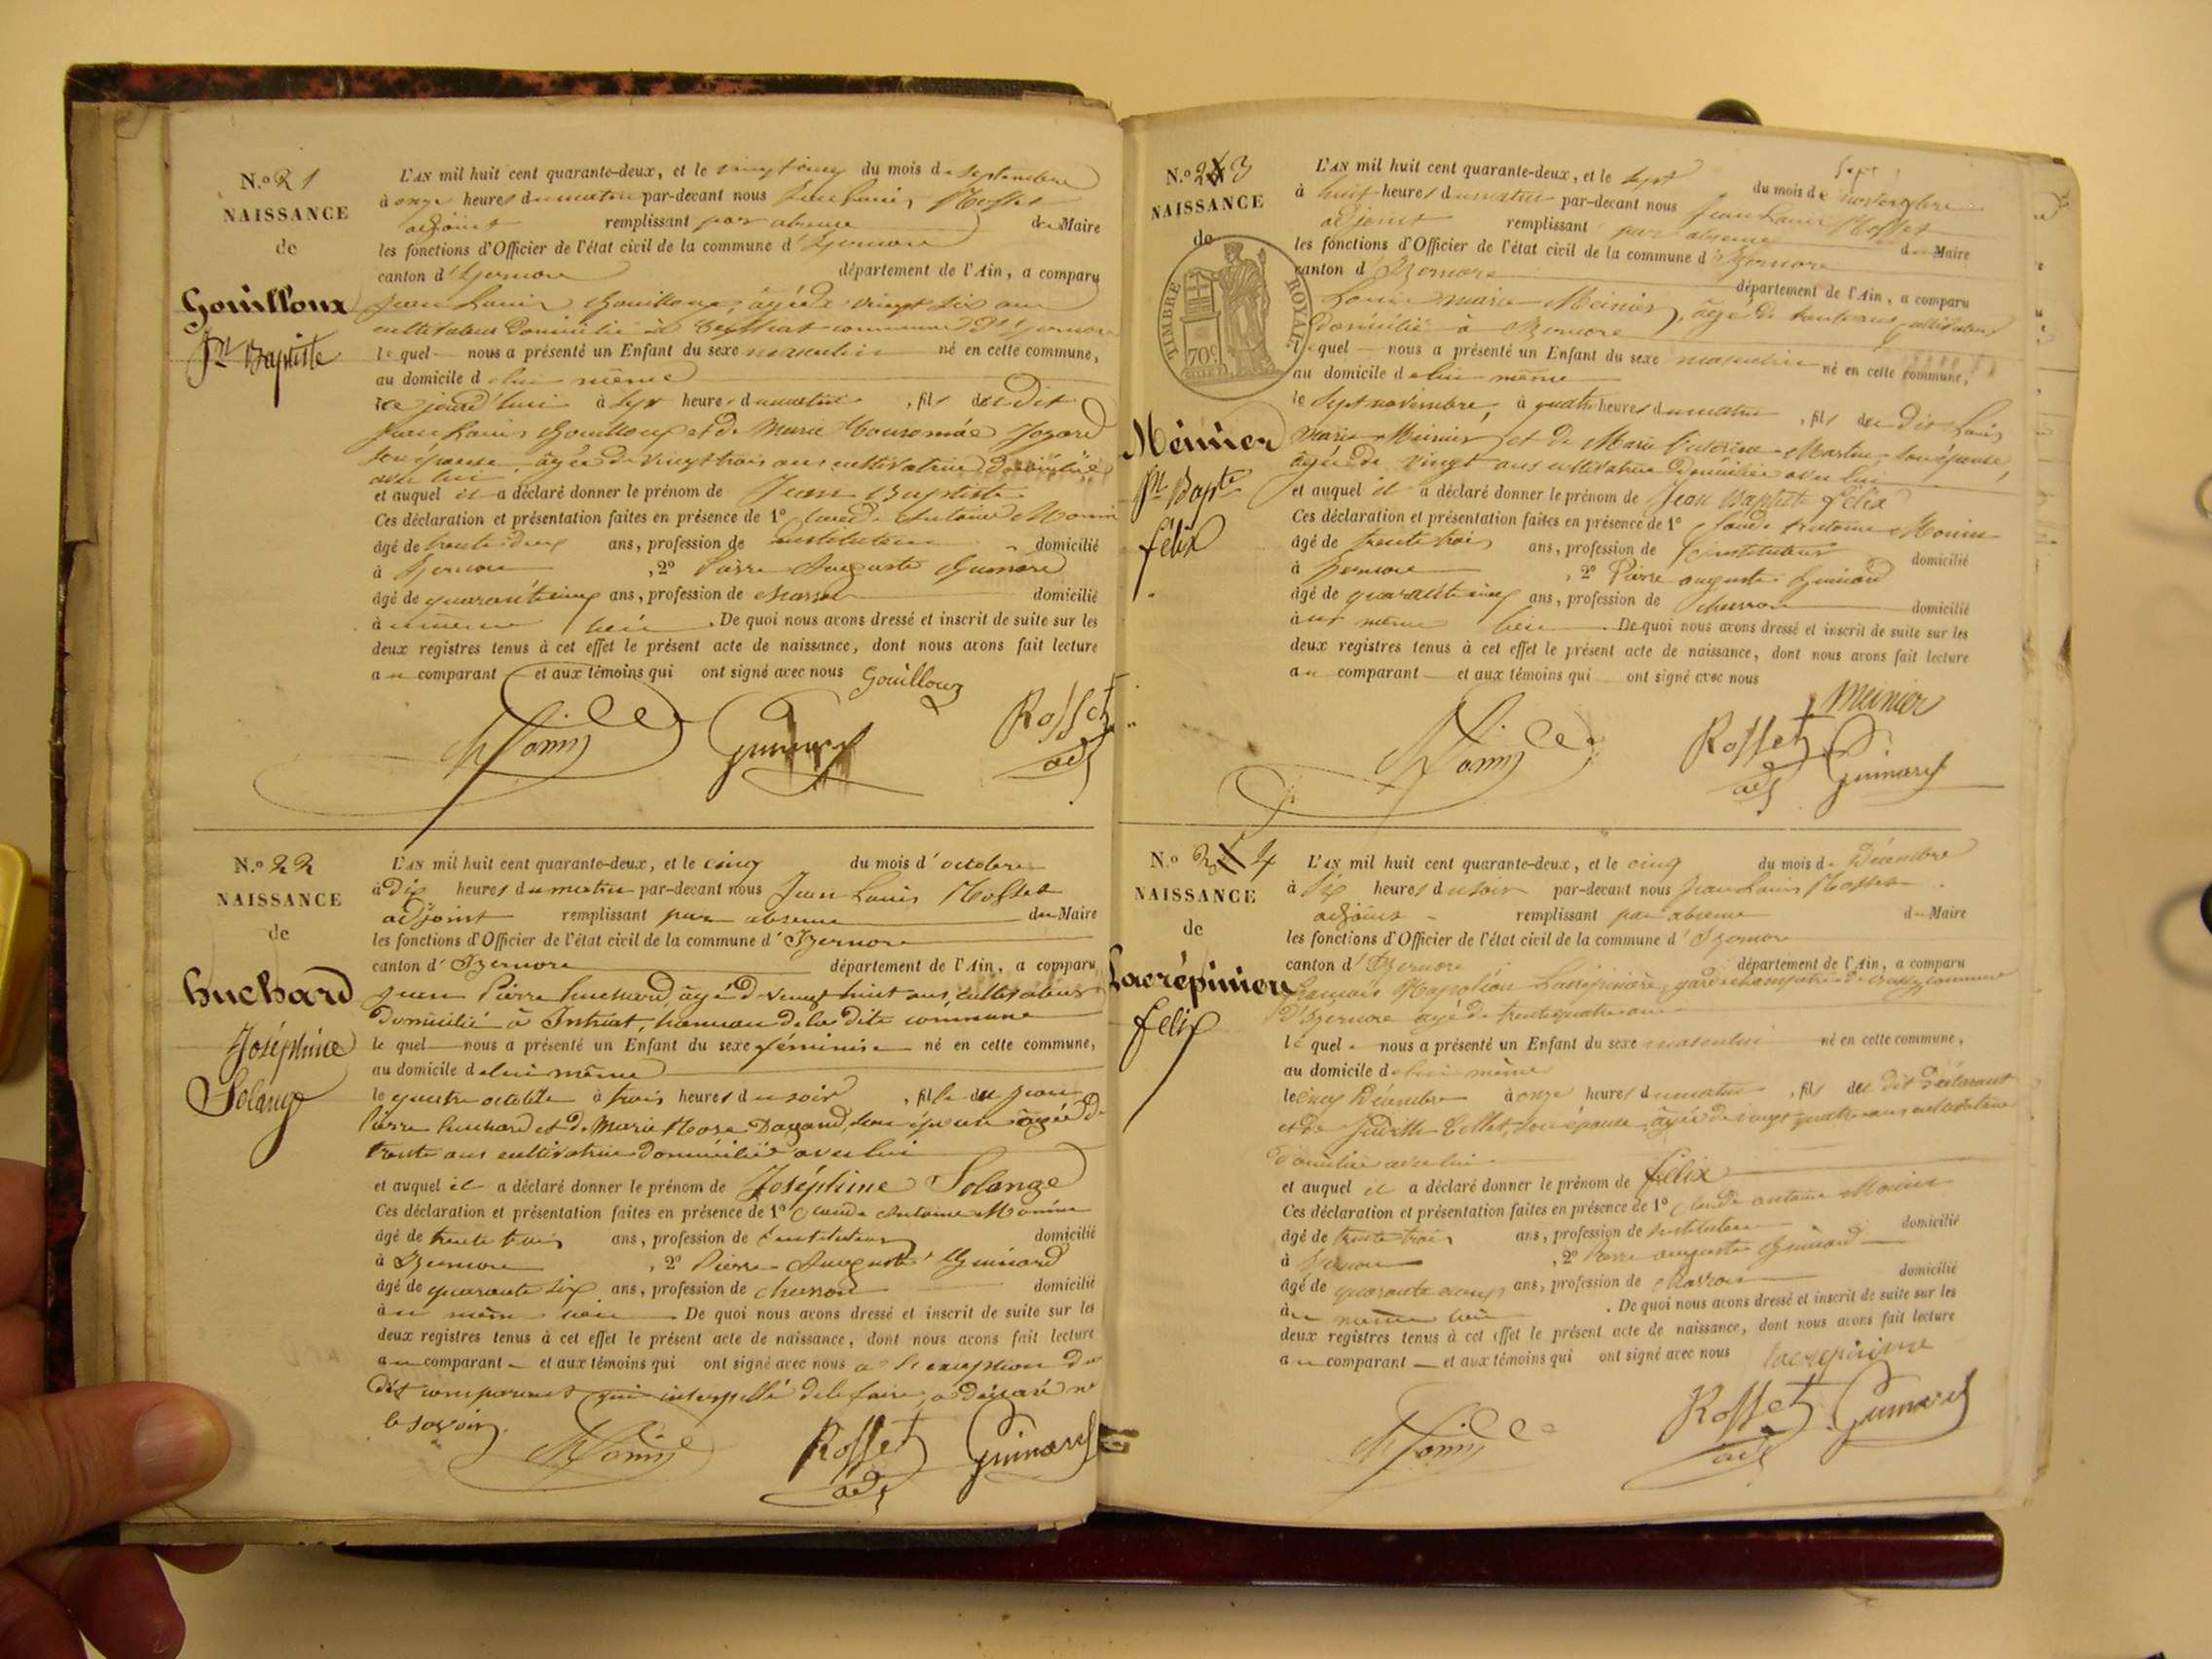 N.º 21
NAISSANCE
de
Gouilloux
Jn Baptiste
L'AN mil huit cent quarante-deux, et le vingt cinq du mois de septembre
à onze heures du matin par-devant nous Jean Louis Rosset
adjoint remplissant par absence du Maire
les fonctions d'Officier de l'état civil de la commune d'Izernore
canton d'Izernore département de l'Ain, a comparu
Jean Louis Gouilloux, âgé de vingt six ans
cultivateur domicilié à Tessiat commune d'Izernore
lequel nous a présenté un Enfant du sexe masculin né en cette commune,
au domicile de lui même
ce jourd'hui à sept heures du matin, fils du dit
Jean Louis Gouilloux et de Marie Jogard
son épouse, âgée de vingt trois ans cultivatrice domiciliée
avec lui
et auquel il a déclaré donner le prénom de Jean Baptiste
Ces déclaration et présentation faites en présence de 1º Claude Antoine Monin
âgé de trente deux ans, profession de instituteur domicilié
à Izernore, 2º Pierre Auguste Guinard
âgé de quarante cinq ans, profession de charron domicilié
au même lieu. De quoi nous avons dressé et inscrit de suite sur les
deux registres tenus à cet effet le présent acte de naissance, dont nous avons fait lecture
au comparant et aux témoins qui ont signé avec nous Gouilloux
Monin Guinard Rosset
adj
N.º 22
NAISSANCE
de
Huchard
Joséphine
Solange
L'AN mil huit cent quarante-deux, et le cinq du mois d'octobre
à dix heures du matin par-devant nous Jean Louis Rosset
adjoint remplissant par absence du Maire
les fonctions d'Officier de l'état civil de la commune d'Izernore
canton d'Izernore département de l'Ain, a comparu
Jean Pierre huchard, âgé de vingt huit ans, cultivateur
domicilié à Intriat, hameau de la dite commune
lequel nous a présenté un Enfant du sexe féminin né en cette commune,
au domicile de lui même
le quatre octobre à trois heures du soir, fille du Jean
Pierre huchard et de Marie Rose Dagand, son épouse âgée de
trente ans cultivatrice domiciliée avec lui
et auquel il a déclaré donner le prénom de Joséphine Solange
Ces déclaration et présentation faites en présence de 1º Claude Antoine Monin
âgé de trente trois ans, profession de instituteur domicilié
à Izernore, 2º Pierre Auguste Guinard
âgé de quarante six ans, profession de charron domicilié
au même lieu De quoi nous avons dressé et inscrit de suite sur les
deux registres tenus à cet effet le présent acte de naissance, dont nous avons fait lecture
au comparant et aux témoins qui ont signé avec nous à l'exception du
dit comparant qui interpellé de le faire, a déclaré ne
le savoir.
Monin Rosset Guinard
adj
N.º 23
NAISSANCE
de
TIMBRE ROYAL
70c
Meinier
Jn Bapte
félix
L'AN mil huit cent quarante-deux, et le sept du mois de novembre
à huit heures du matin par-devant nous Jean Louis Rosset
adjoint remplissant par absence du Maire
les fonctions d'Officier de l'état civil de la commune d'Izernore
canton d'Izernore département de l'Ain, a comparu
Louis marie Meinier, âgé de trente ans, cultivateur
domicilié à Izernore
lequel nous a présenté un Enfant du sexe masculin né en cette commune,
au domicile de lui même
le sept novembre, à quatre heures du matin, fils du dit Louis
marie Meinier et de Marie Martin, son épouse,
âgée de vingt ans cultivatrice domiciliée avec lui
et auquel il a déclaré donner le prénom de Jean Baptiste félix
Ces déclaration et présentation faites en présence de 1º Claude Antoine Monin
âgé de trente trois ans, profession de instituteur domicilié
à Izernore, 2º Pierre auguste Guinard
âgé de quarante cinq ans, profession de charron domicilié
au même lieu. De quoi nous avons dressé et inscrit de suite sur les
deux registres tenus à cet effet le présent acte de naissance, dont nous avons fait lecture
au comparant et aux témoins qui ont signé avec nous
Meinier
Monin Rosset Guinard
adj
N.º 24
NAISSANCE
de
Lacrépinière
félix
L'AN mil huit cent quarante-deux, et le cinq du mois de Décembre
à six heures du soir par-devant nous Jean Louis Rosset
adjoint remplissant par absence du Maire
les fonctions d'Officier de l'état civil de la commune d'Izernore
canton d'Izernore département de l'Ain, a comparu
français Napoléon Lacrépinière, garde champêtre commune
d'Izernore âgé de trente quatre ans
lequel nous a présenté un Enfant du sexe masculin né en cette commune,
au domicile de lui même
le cinq Décembre à onze heures du matin, fils du dit déclarant
et de Judith Collet, son épouse, âgée de vingt quatre ans cultivatrice
domiciliée avec lui
et auquel il a déclaré donner le prénom de félix
Ces déclaration et présentation faites en présence de 1º Claude antoine Monin
âgé de trente trois ans, profession de instituteur domicilié
à Izernore, 2º Pierre auguste Guinard
âgé de quarante cinq ans, profession de charron domicilié
au même lieu. De quoi nous avons dressé et inscrit de suite sur les
deux registres tenus à cet effet le présent acte de naissance, dont nous avons fait lecture
au comparant et aux témoins qui ont signé avec nous Lacrepinière
Monin Rosset Guinard
adj